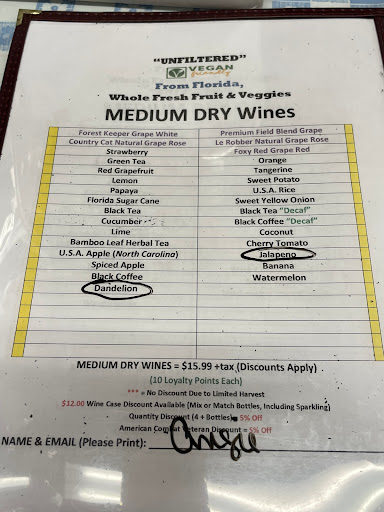 "UNFILTERED"
VEGAN
friendly
From Florida,
Whole Fresh Fruit & Veggies
MEDIUM DRY Wines
Forest Keeper Grape White Premium Field Blend Grape
Country Cat Natural Grape Rose Le Robber Natural Grape Rose
Strawberry Foxy Red Grape Red
Green Tea Orange
Red Grapefruit Tangerine
Lemon Sweet Potato
Papaya U.S.A. Rice
Florida Sugar Cane Sweet Yellow Onion
Black Tea Black Tea "Decaf"
Cucumber Black Coffee "Decaf"
Lime Coconut
Bamboo Leaf Herbal Tea Cherry Tomato
U.S.A. Apple (North Carolina) Jalapeno
Spiced Apple Banana
Black Coffee Watermelon
Dandelion
MEDIUM DRY WINES = $15.99 +tax (Discounts Apply)
(10 Loyalty Points Each)
*** = No Discount Due to Limited Harvest
$12.00 Wine Case Discount Available (Mix or Match Bottles, Including Sparkling)
Quantity Discount (4 + Bottles)= 5% Off
American Combat Veteran Discount = 5% Off
NAME & EMAIL (Please Print):